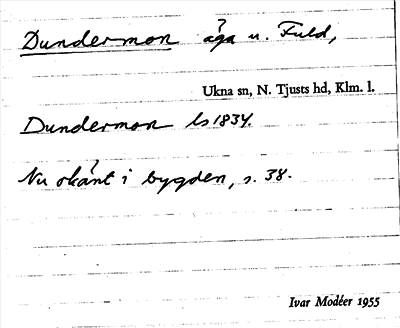 Dundermon åga u. Fuld,
Ukna sn, N. Tjusts hd, Klm. l.
Dundermon ls 1834.
Nu okänt i bygden, s. 38.
Ivar Modéer 1955